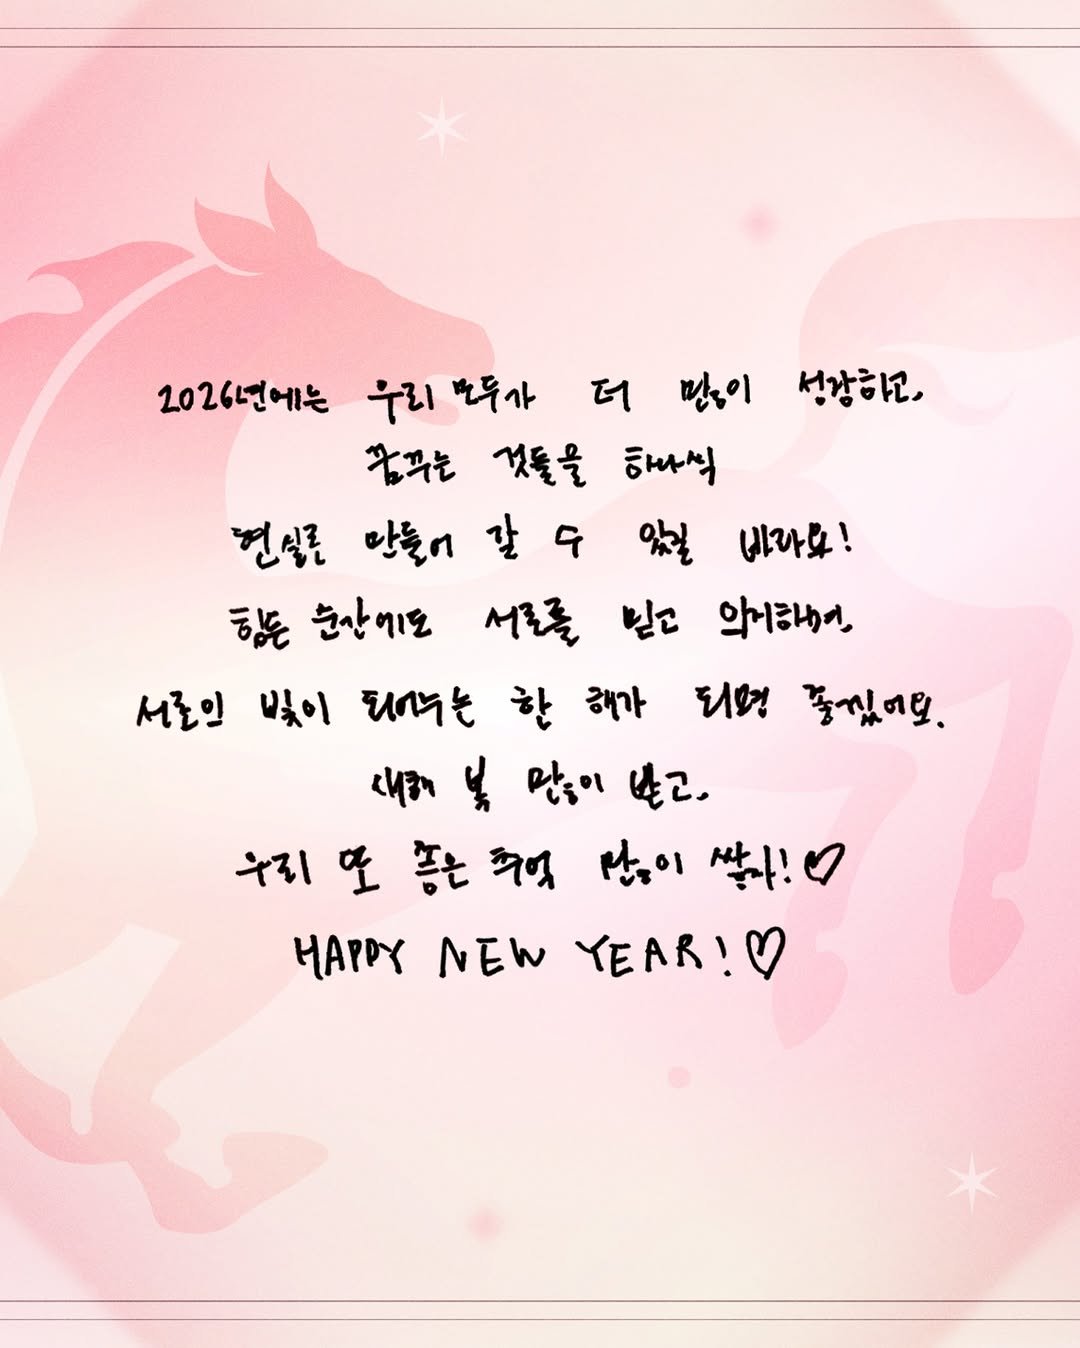 2026년에는 우리 모두가 더 많이 성장하고,
꿈꾸는 것들을 하나씩
현실로 만들어 갈 수 있길 바라요!
힘든 순간에도 서로를 믿고 의지하며,
서로의 빛이 되어주는 한 해가 되면 좋겠어요.
새해 복 많이 받고,
우리 또 좋은 추억 많이 쌓자!♡
HAPPY NEW YEAR!♡